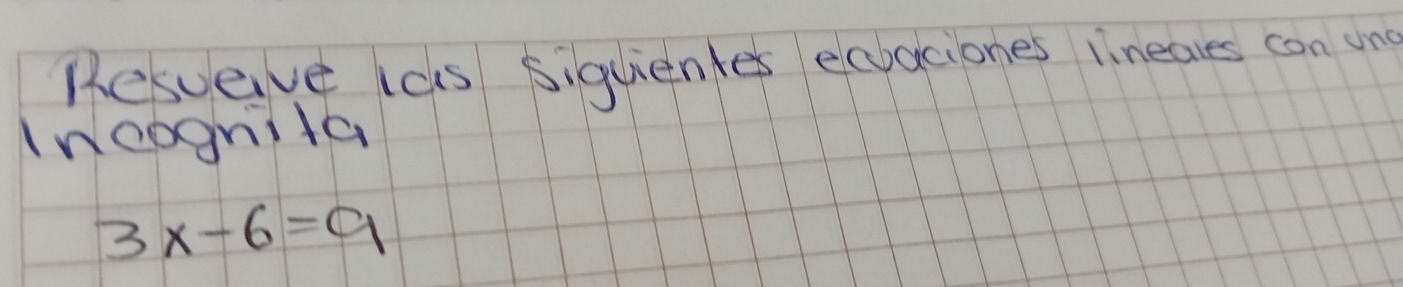 Resuelve las siguientes ecuaciones lineales con una
incognita
3x-6=9